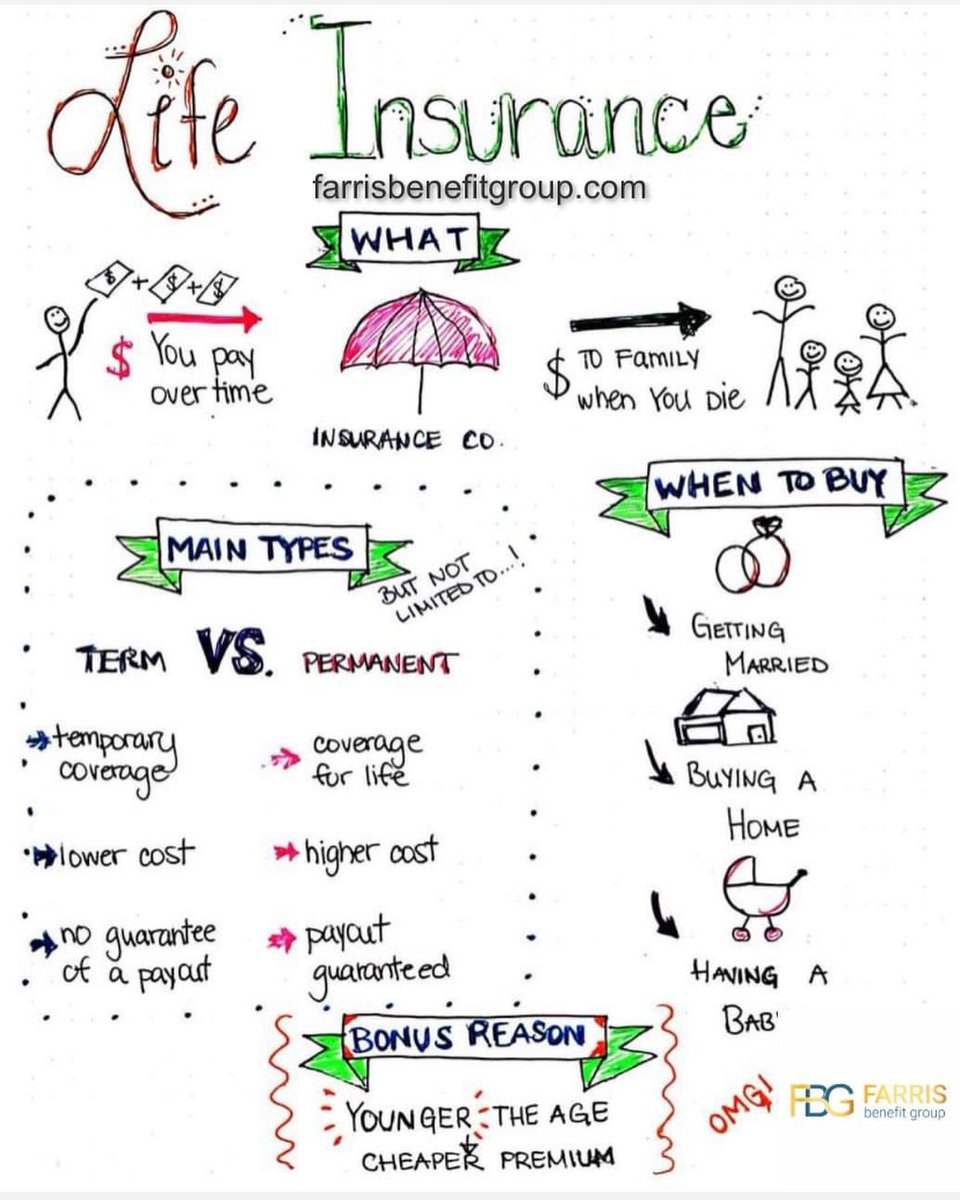 Life Insurance
farrisbenefitgroup.com
WHAT
$ + $ + $
$ You pay
over time
INSURANCE CO.
$ TO FAMILY
when You Die
WHEN TO BUY
GETTING
MARRIED
BUYING A
HOME
HAVING A
BAB
MAIN TYPES
BUT NOT
LIMITED TO...!
TERM VS. PERMANENT
temporary
coverage
coverage
for life
lower cost
higher cost
no guarantee
of a payout
payout
guaranteed
BONUS REASON
YOUNGER THE AGE
CHEAPER PREMIUM
OMG!
FBG FARRIS
benefit group